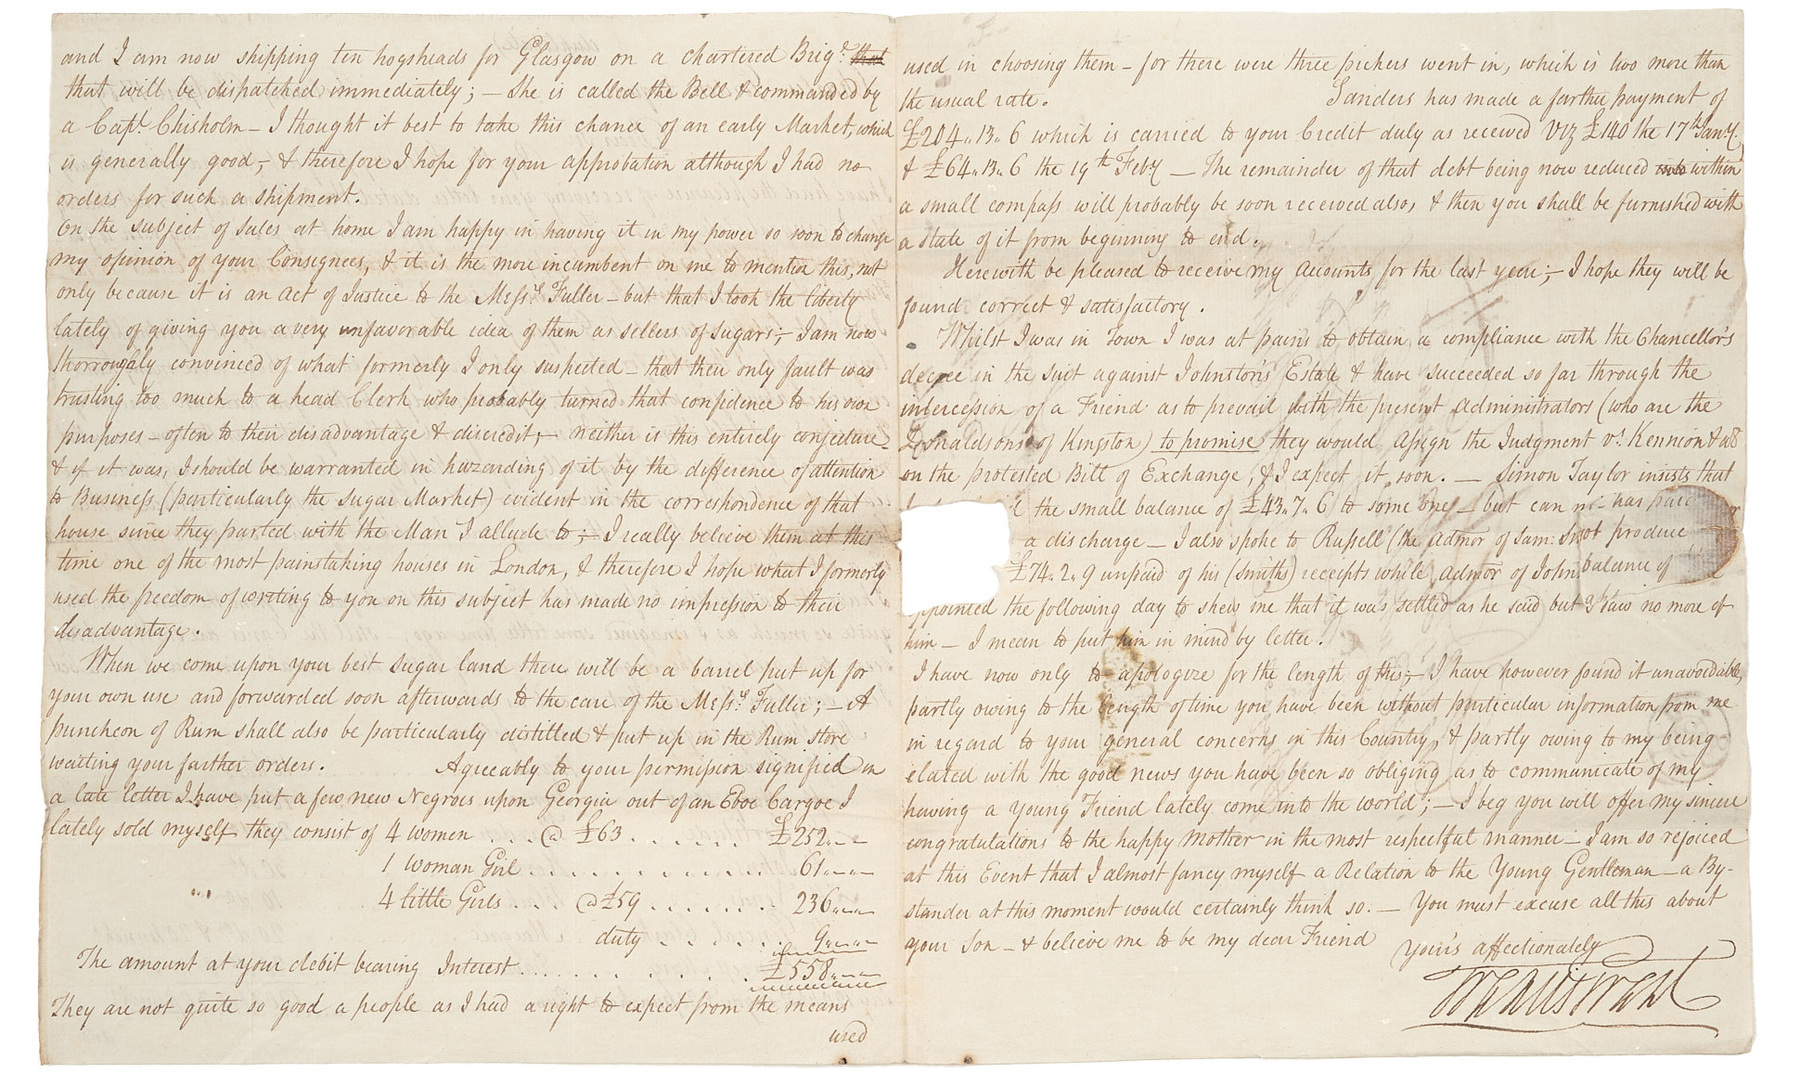 and I am now shipping ten hogsheads for Glasgow on a chartered Brig.e that
that will be dispatched immediately; – She is called the Bell & commanded by
a Capt. Chisholm – I thought it best to take this chance of an early Market, which
is generally good, & therefore I hope for your approbation although I had no
orders for such a shipment.
On the subject of sales at home I am happy in having it in my power so soon to change
my opinion of your Consignees, & it is the more incumbent on me to mention this, not
only because it is an act of Justice to the Messrs Fuller – but that I took the liberty
lately of giving you a very unfavorable idea of them as sellers of sugars; – I am now
thorroughly convinced of what formerly I only suspected – that their only fault was
trusting too much to a head Clerk who probably turned that confidence to his own
purposes – often to their disadvantage & discredit; – neither is this entirely conjecture –
& if it was, I should be warranted in hazarding of it by the difference of attention
to Business (particularly the sugar Market) evident in the correspondence of that
house since they parted with the Man I allude to; – I really believe them at this
time one of the most painstaking houses in London, & therefore I hope what I formerly
used the freedom of writing to you on this subject has made no impression to their
disadvantage.
When we come upon your best sugar land there will be a barrel put up for
your own use and forwarded soon afterwards to the care of the Messrs Fuller; – A
puncheon of Rum shall also be particularly distilled & put up in the Rum store
waiting your farther orders. Agreeably to your permission signified in
a late letter I have put a few new Negroes upon Georgia out of an Eboe Cargoe I
lately sold myself they consist of 4 women . . . @ £63 . . . . . . £252.–.–
1 woman Girl . . . . . . . . . . . 61.–.–
4 little Girls . . . @ £59 . . . . . . . 236.–.–
duty . . . . . . 9.–.–
The amount at your debit bearing Interest . . . . . . . . . . £558.–.–
They are not quite so good a people as I had a right to expect from the means
used
used in choosing them – for there were three pickers went in, which is two more than
the usual rate. Sanders has made a farther payment of
£204.. 13.. 6 which is carried to your Credit duly as received Viz £140 the 17th Jany.
& £64.. 13.. 6 the 19th Feby – The remainder of that debt being now reduced into within
a small compass will probably be soon received also, & then you shall be furnished with
a state of it from beginning to end.
Herewith be pleased to receive my accounts for the last year; – I hope they will be
found correct & satisfactory.
Whilst I was in Town I was at pains to obtain a compliance with the Chancellor's
decree in the suit against Johnston's Estate & have succeeded so far through the
intercession of a Friend as to prevail with the present Administrators (who are the
Donaldsons of Kingston) to promise they would assign the Judgment vs. Kennion & als
on the protested Bill of Exchange, & I expect it soon. – Simon Taylor insists that
the small balance of £43.. 7.. 6 to some one – but can no has paid
a discharge – I also spoke to Russell (the Admor of Sam: not produce
£74.. 2.. 9 unpaid of his (Smith's) receipts while Admor of John balance of
appointed the following day to shew me that it was settled as he said but I saw no more of
him – I mean to put him in mind by letter.
I have now only to apologize for the length of this; – I have however found it unavoidable,
partly owing to the length of time you have been without particular information from me
in regard to your general concerns in this Country, & partly owing to my being
elated with the good news you have been so obliging as to communicate of my
having a young Friend lately come into the world; – I beg you will offer my sincere
congratulations to the happy Mother in the most respectful manner – I am so rejoiced
at this Event that I almost fancy myself a Relation to the Young Gentleman – a By-
stander at this moment would certainly think so. – You must excuse all this about
your Son – & believe me to be my dear Friend
Your's affectionately